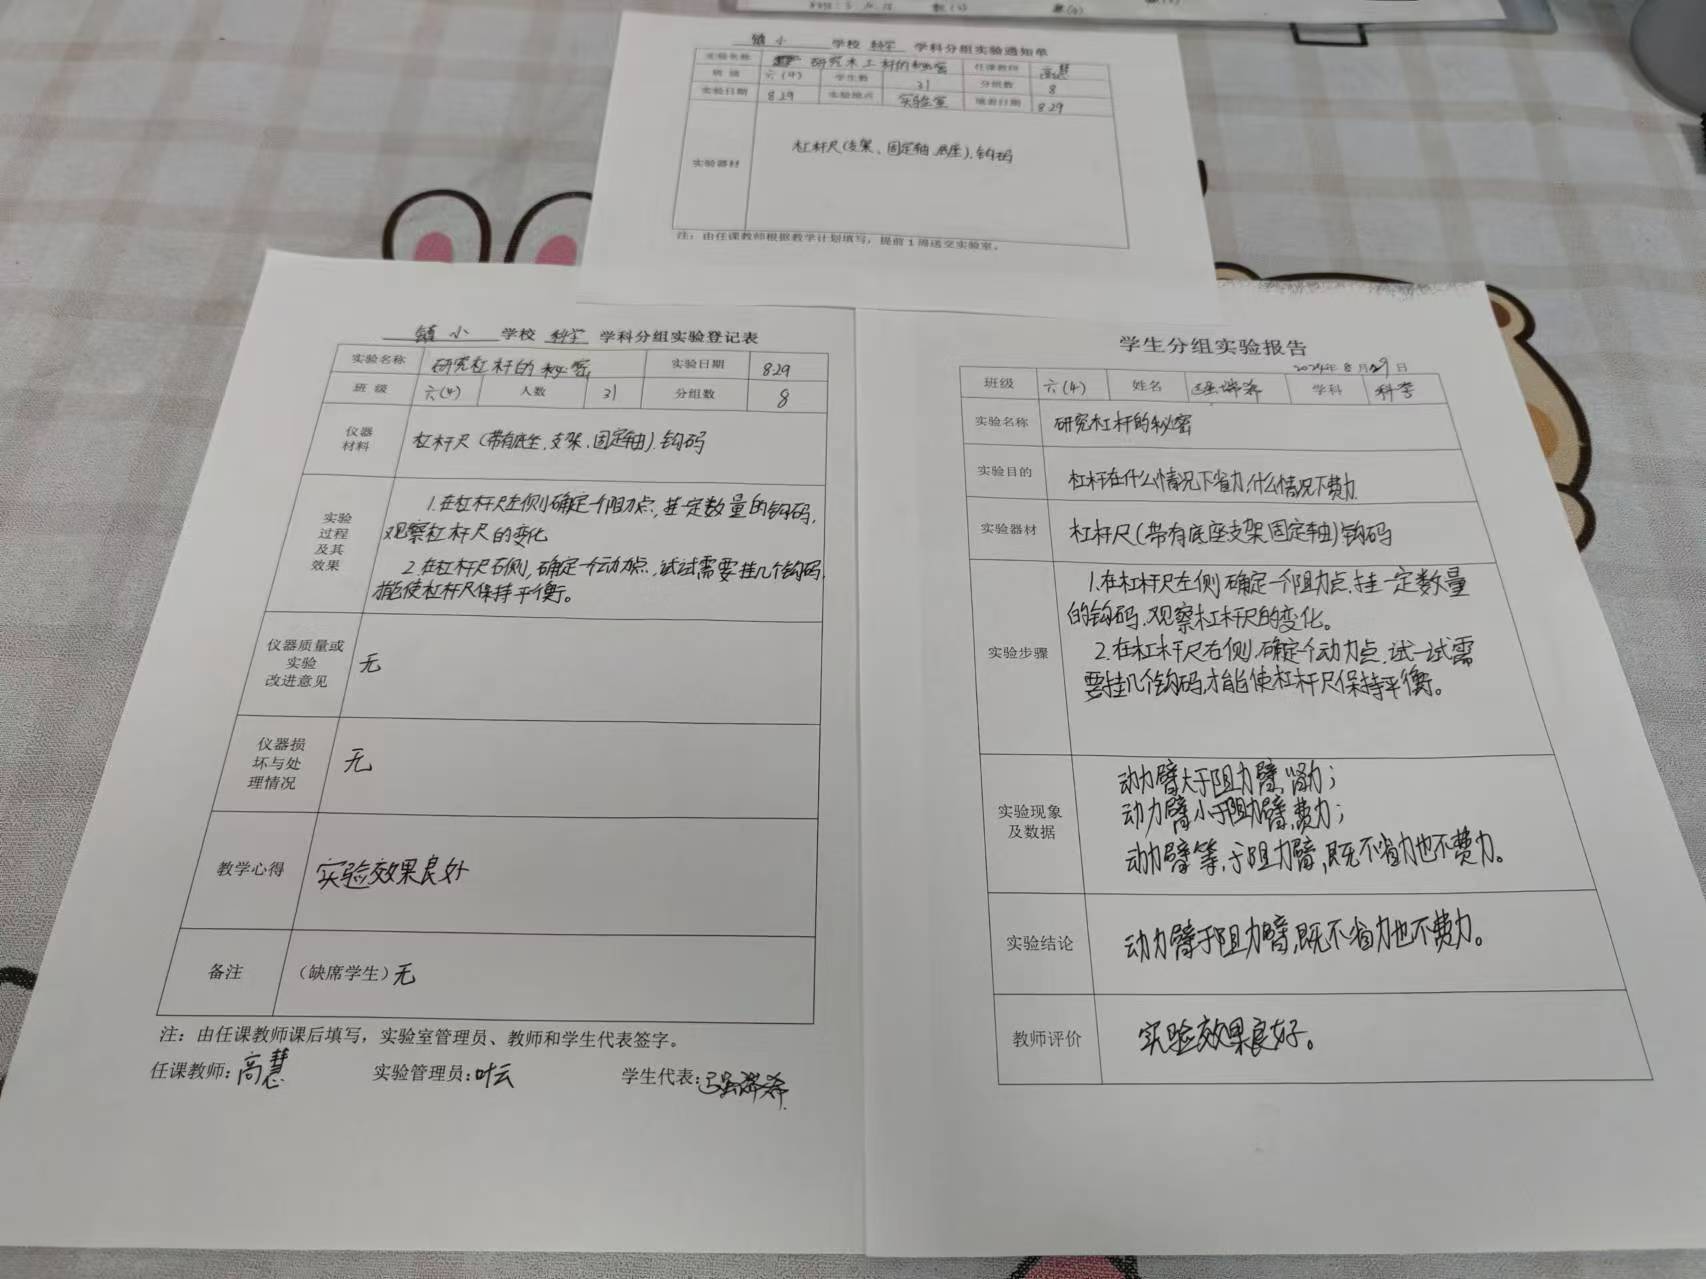 镇小 学校 科学 学科分组实验通知单
实验名称 研究杠杆的秘密 任课教师 高慧
班级 六(4) 学生数 31 分组数 8
实验日期 8.29 实验地点 实验室 填报日期 8.29
实验器材 杠杆尺(支架、固定轴、底座)、钩码
注:由任课教师根据教学计划填写,提前1周送交实验室。
镇小 学校 科学 学科分组实验登记表
实验名称 研究杠杆的秘密 实验日期 8.29
班级 六(4) 人数 31 分组数 8
仪器
材料
杠杆尺(带有底座、支架、固定轴)、钩码
实验
过程
及其
效果
1.在杠杆尺左侧确定一个阻力点,挂一定数量的钩码,
观察杠杆尺的变化
2.在杠杆尺右侧,确定一个动力点,试试需要挂几个钩码,
才能使杠杆尺保持平衡。
仪器质量或
实验
改进意见
无
仪器损
坏与处
理情况
无
教学心得 实验效果良好
备注 (缺席学生)无
注:由任课教师课后填写,实验室管理员、教师和学生代表签字。
任课教师:高慧 实验管理员:叶云 学生代表:
学生分组实验报告
2024年8月29日
班级 六(4) 姓名 学科 科学
实验名称 研究杠杆的秘密
实验目的 杠杆在什么情况下省力,什么情况下费力
实验器材 杠杆尺(带有底座支架固定轴)钩码
实验步骤
1.在杠杆尺左侧确定一个阻力点,挂一定数量
的钩码,观察杠杆尺的变化。
2.在杠杆尺右侧,确定个动力点,试一试需
要挂几个钩码,才能使杠杆尺保持平衡。
实验现象
及数据
动力臂大于阻力臂,省力;
动力臂小于阻力臂,费力;
动力臂等于阻力臂,既不省力也不费力。
实验结论 动力臂于阻力臂,既不省力也不费力。
教师评价 实验效果良好。